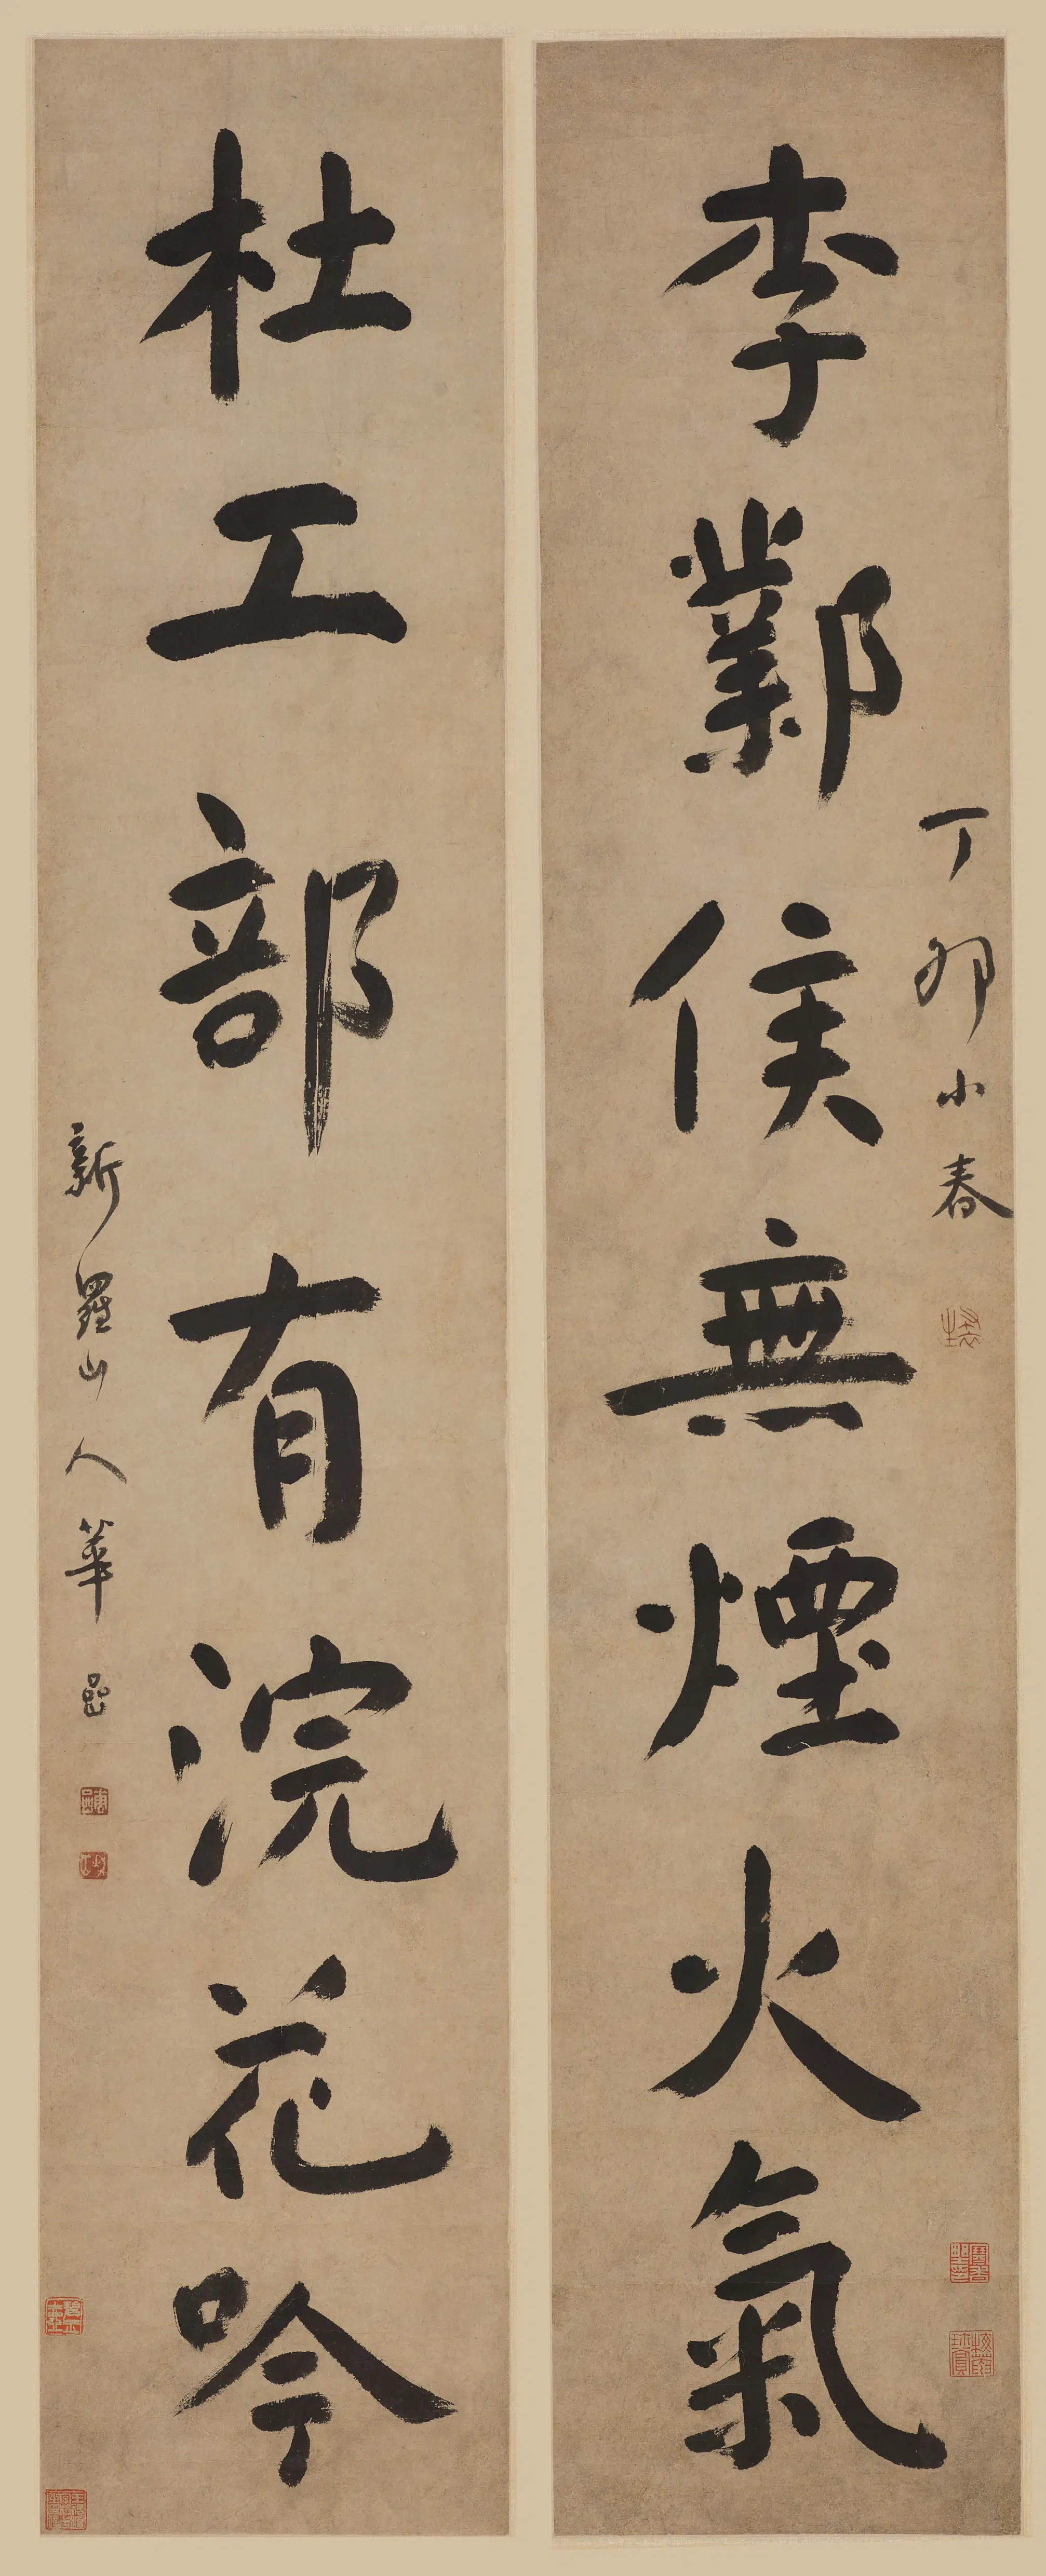 丁卯小春
李鄴侯無煙火氣
杜工部有浣花吟
新羅山人華嵒